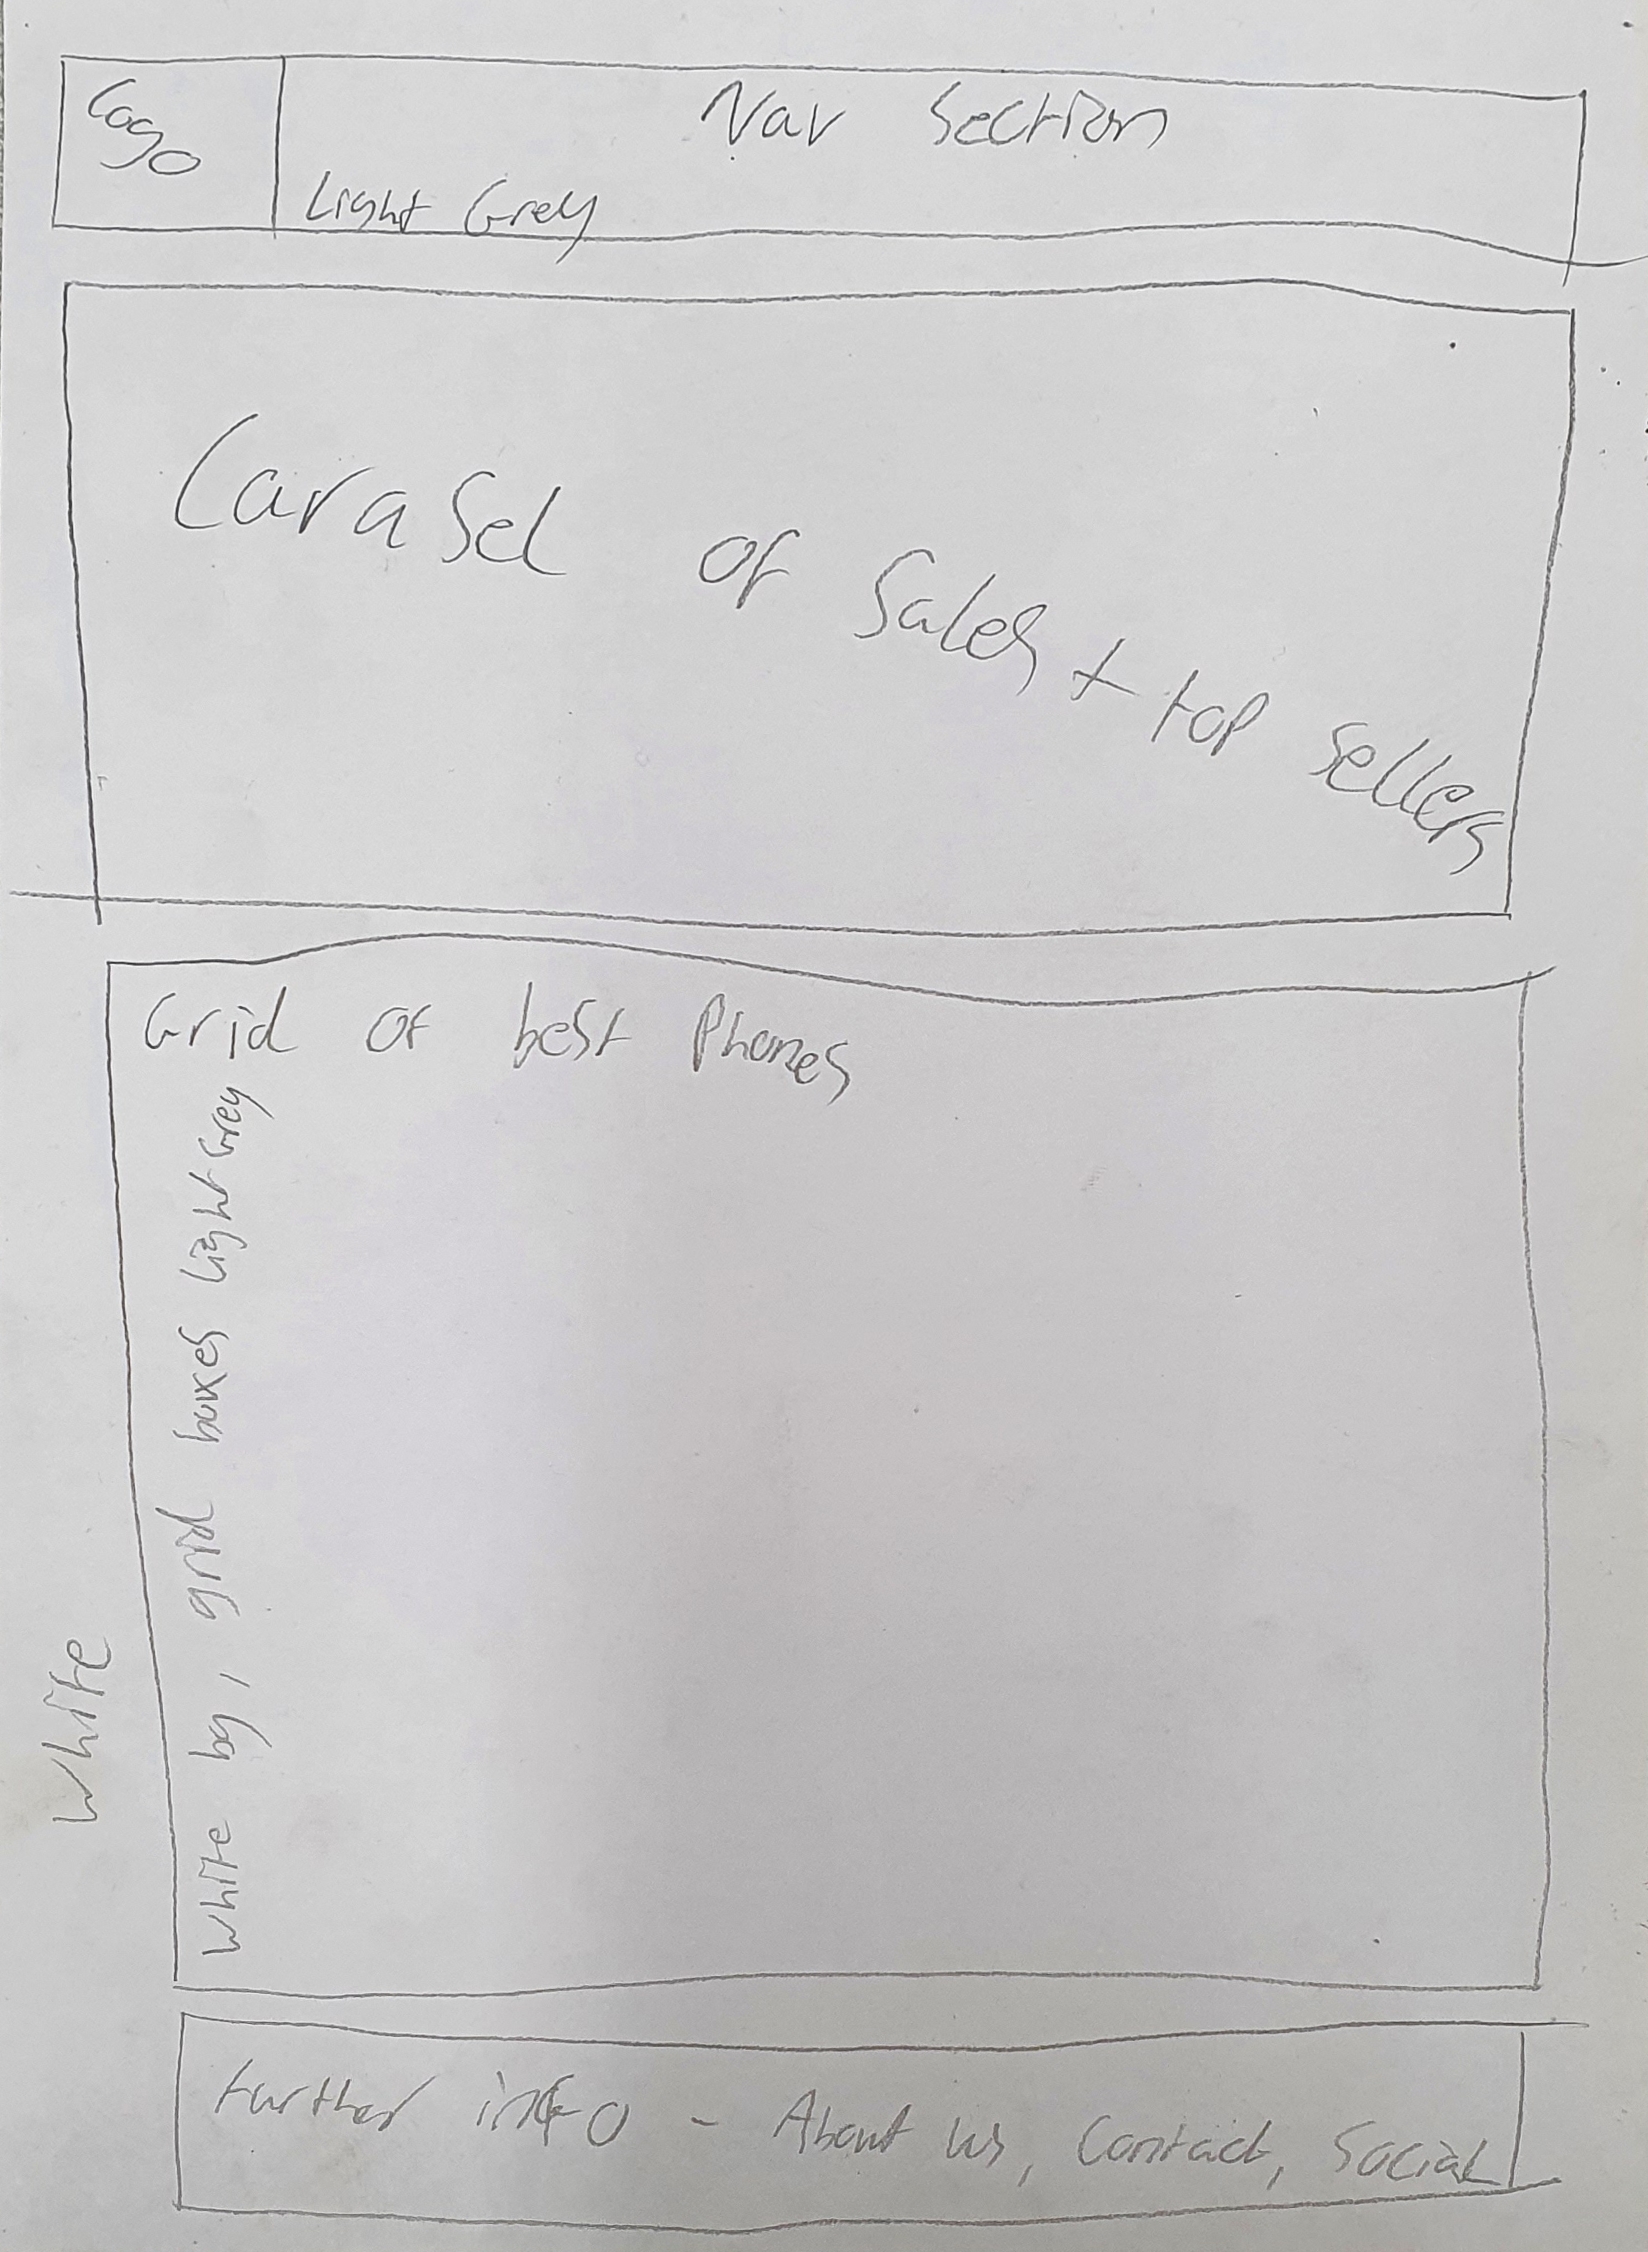 Logo
Nav Section
Light Grey
Carasel of Sales + top sellers
Grid of best Phones
White bg, grid boxes Light Grey
White
Further info - About us, Contact, Social